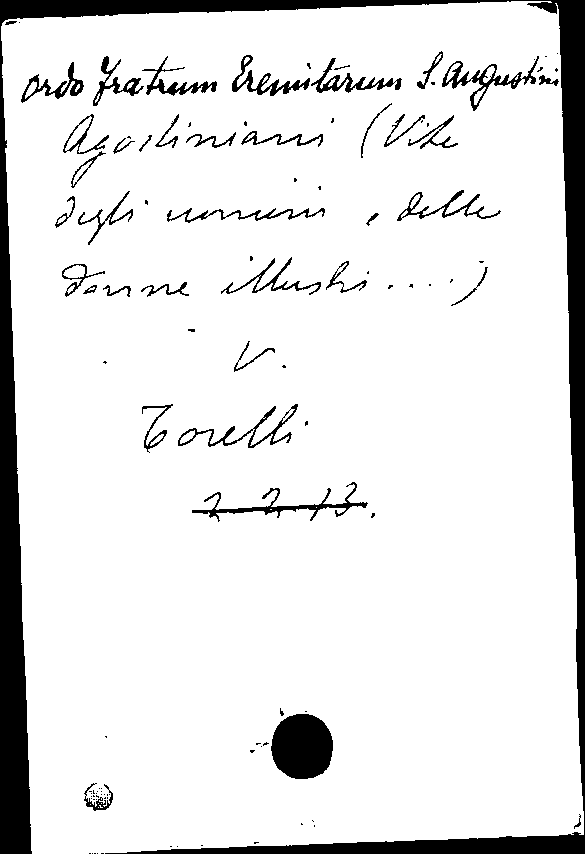 Ordo Fratrum Eremitarum S. Augustini
Agostiniani (Vite
degli uomini e delle
donne illustri....)
V.
Torelli
2 2 13.